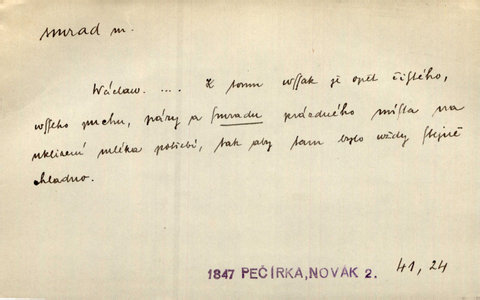 smrad m.
Wáclaw. .... K tomu wssak je opět čistého,
wsseho puchu, páry a smradu prázdného místa na
uklizení mléka potřebí, tak aby tam bylo wždy stejně
chladno.
1847 PEČÍRKA, NOVÁK 2. 41, 24